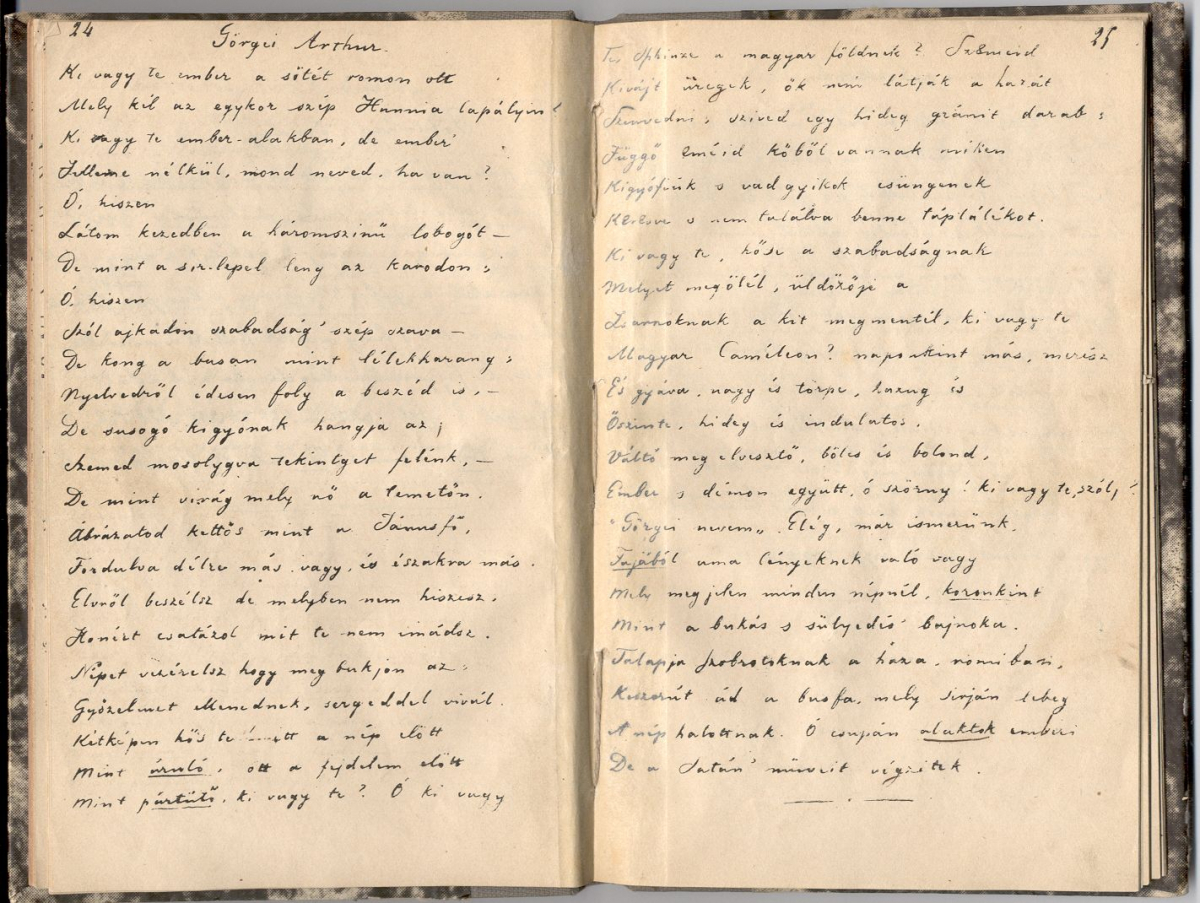 24
Görgei Arthur.
Ki vagy te ember a sötét romon ott
Mely kél az egykor szép Hunnia lapályin!
Ki vagy te ember-alakban, de ember
Jelleme nélkül, mond neved, ha van?
Ó, hiszen
Látom kezedben a háromszinü lobogót –
De mint a szemlepel leng az karodon;
Ó, hiszen
Szól ajkadon szabadság' szép szava –
De kong a busan mint lélekharang;
Nyelvedről édesen foly a beszéd is, –
De susogó kigyónak hangja az;
Szemed mosolygva tekintget felénk, –
De mint virág mely nő a temetőn.
Ábrázatod kettős mint a Jánusfő,
Fordulva délre más vagy, és északra más.
Elvről beszélsz de melyben nem hiszesz,
Honért csatázol mit te nem imádsz.
Népet vezérelsz hogy meg bukjon az;
Győzelmet Menednek, sergeddel vivál.
Kétképen hős te a nép előtt
Mint áruló, ott a fejdelem előtt
Mint pártütő, ki vagy te? Ó ki vagy
25
Te, Sphinxe a magyar földnek? Szemeid
Kivájt üregek, ők nem látják a hazát
Szenvedni; szived egy hideg gránit darab;
Függő emőid kőből vannak miken
Kigyófiúk s vad gyikok csüngenek
Keresve s nem találva benne táplálékot.
Ki vagy te, hőse a szabadságnak
Melyet megölél, üldözője a
Zsarnoknak a kit megmentél, ki vagy te
Magyar Caméleon? naponkint más, merész
És gyáva, nagy és törpe, hazug és
Őszinte, hideg és indulatos,
Váltó meg elvesztő, bölcs és bolond,
Ember s démon együtt, ó szörny! ki vagy te, szólj!
"Görgei nevem„ Elég, már ismerünk.
Fajából ama lényeknek való vagy
Mely megjelen minden népnél, koronkint
Mint a bukás s sülyedés bajnoka.
Talapja szobrotoknak a haza, romibari,
Koszorút ád a busfa, mely sirján lebeg
A nép halottnak. Ó csupán alaktok emberi
De a Satán' müveit végzitek.